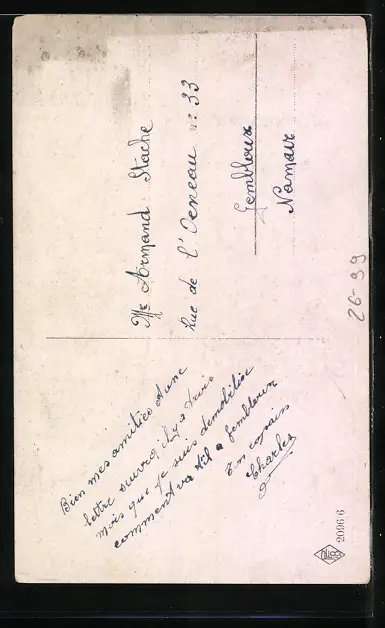 Mr Armand Stache
Rue de l'Orneau n° 33
Gembloux
Namur
Bien mes amitiées d'une
lettre suivra il y a trois
mois que je suis demobilise
comment va t'il a Gembloux
Ton copain
Charles
26-99
20966